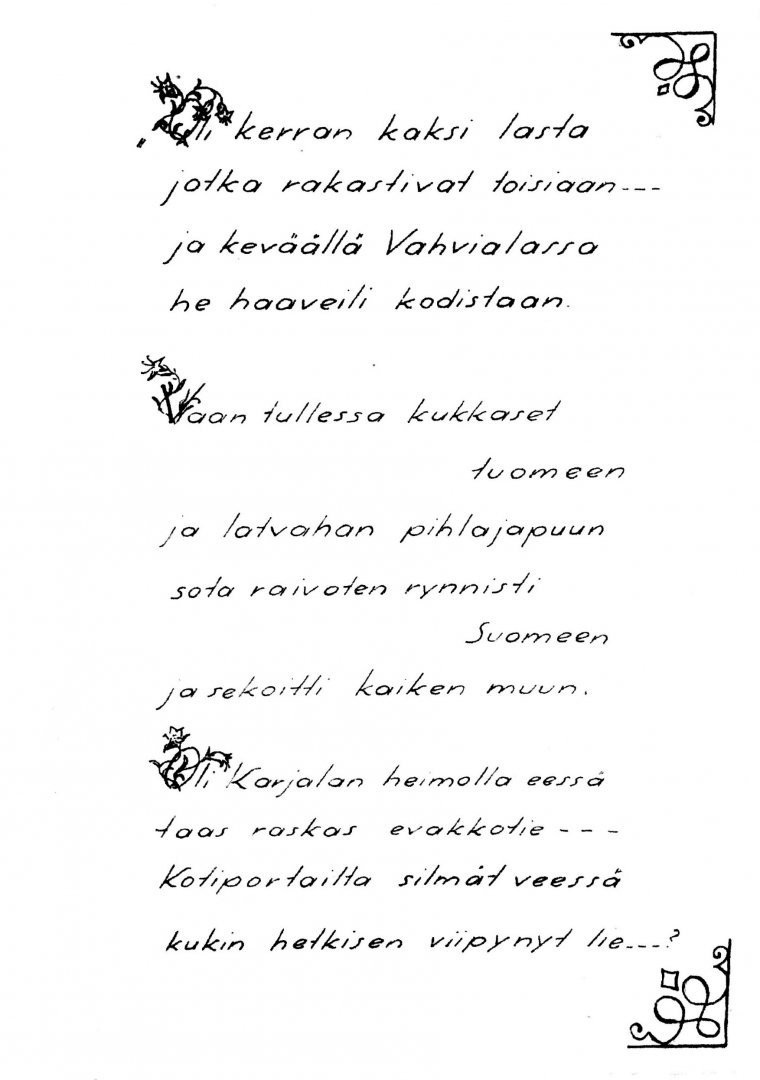 "Oli kerran kaksi lasta
jotka rakastivat toisiaan---
ja keväällä Vahvialassa
he haaveili kodistaan.
Vaan tullessa kukkaset
tuomeen
ja latvahan pihlajapuun
sota raivoten rynnisti
Suomeen
ja sekoitti kaiken muun.
Oli Karjalan heimolla eessä
taas raskas evakkotie ---
Kotiportailta silmät veessä
kukin hetkisen viipynyt lie---?